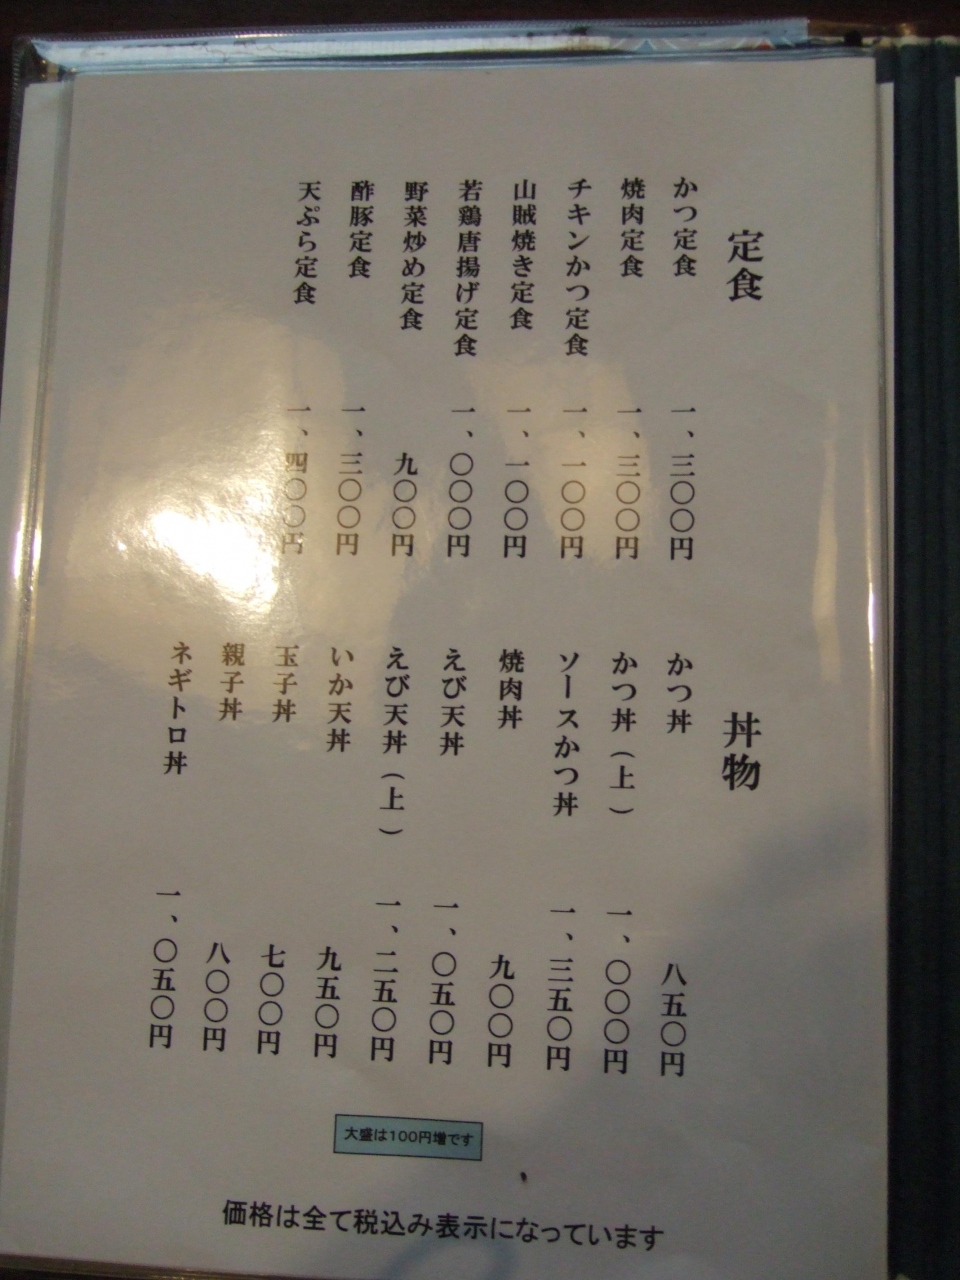 定食
かつ定食 一、三〇〇円
焼肉定食 一、三〇〇円
チキンかつ定食 一、一〇〇円
山賊焼き定食 一、一〇〇円
若鶏唐揚げ定食 一、〇〇〇円
野菜炒め定食 九〇〇円
酢豚定食 一、三〇〇円
天ぷら定食 一、四〇〇円
丼物
かつ丼 八五〇円
かつ丼（上） 一、〇〇〇円
ソースかつ丼 一、三五〇円
焼肉丼 九〇〇円
えび天丼 一、〇五〇円
えび天丼（上） 一、二五〇円
いか天丼 九五〇円
玉子丼 七〇〇円
親子丼 八〇〇円
ネギトロ丼 一、〇五〇円
大盛は100円増です
価格は全て税込み表示になっています